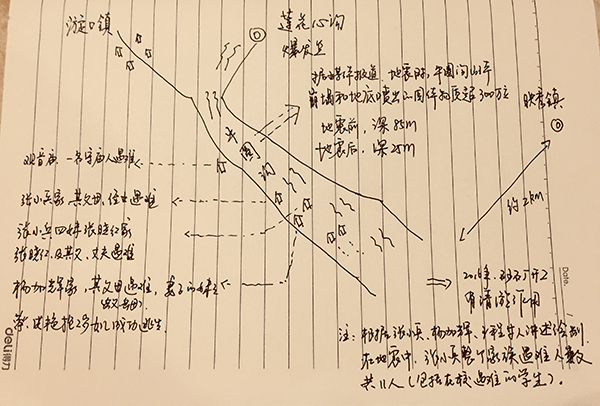 漩口镇
莲花心沟
爆发点
据媒体报道,地震时,牛圈沟山体
崩塌和地底喷出的固体物质超300万方
地震前,深85m
地震后,深25m
映秀镇
牛圈沟
约2km
观音庙,一名守庙人遇难
张小兵家,其父母、侄女遇难
张小兵四妹张晓红家
张晓红及其父、丈夫遇难
杨加辉家,其父母遇难,妻子
抱2岁女儿成功逃生
注:根据张小兵、杨加辉、等人讲述绘制
在地震中,张小兵整个家族遇难人数
共11人(包括在校遇难的学生)。
Date.
deli得力